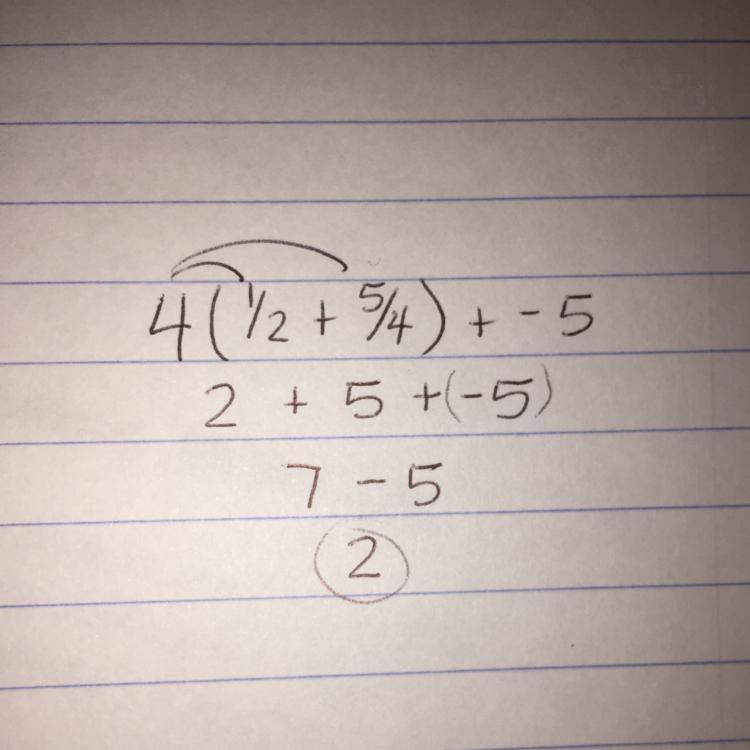 4(1/2 + 5/4) + -5
2 + 5 +(-5)
7 - 5
2